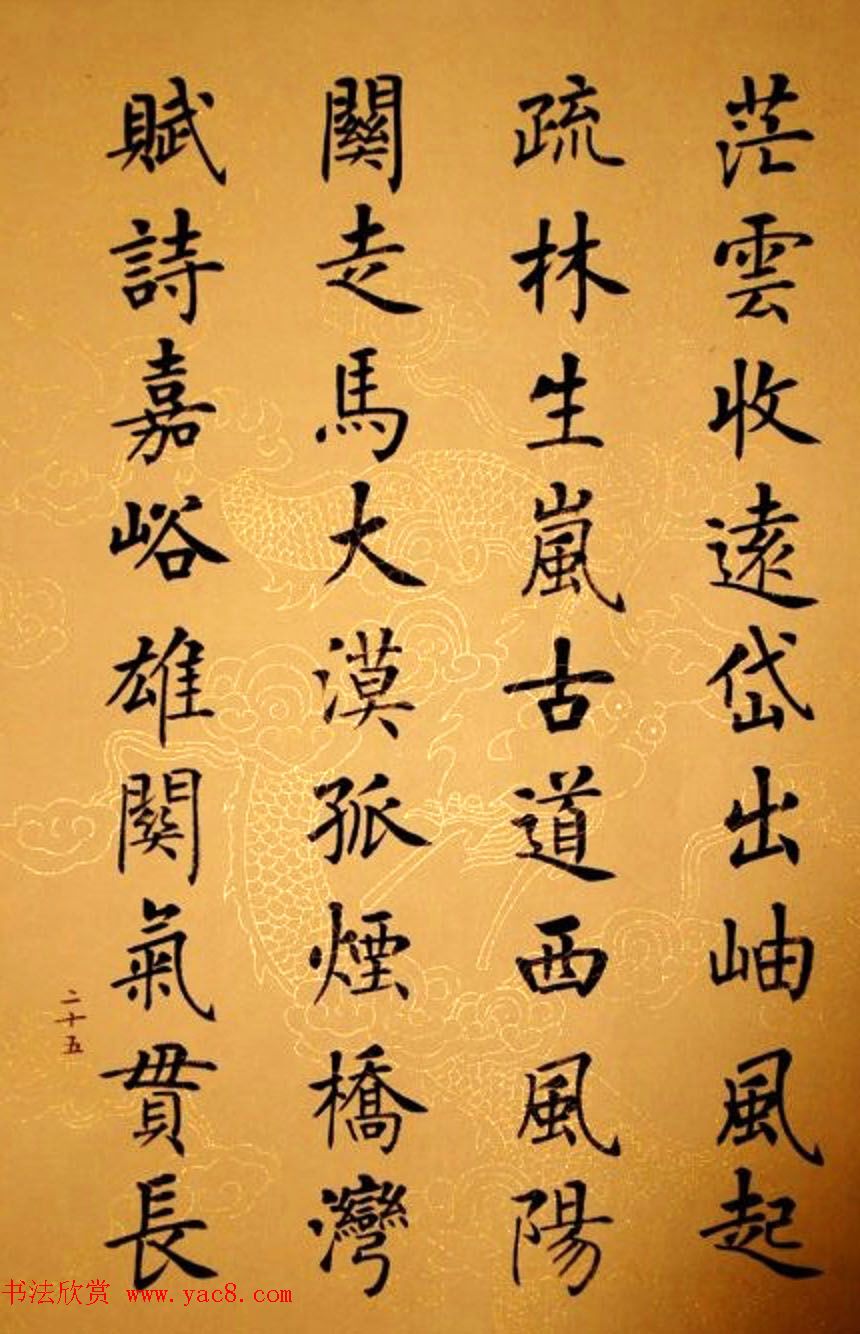 茫雲收遠岱出岫風起
疏林生嵐古道西風陽
關走馬大漠孤煙橋灣
賦詩嘉峪雄關氣貫長
二十五
书法欣赏 www.yac8.com